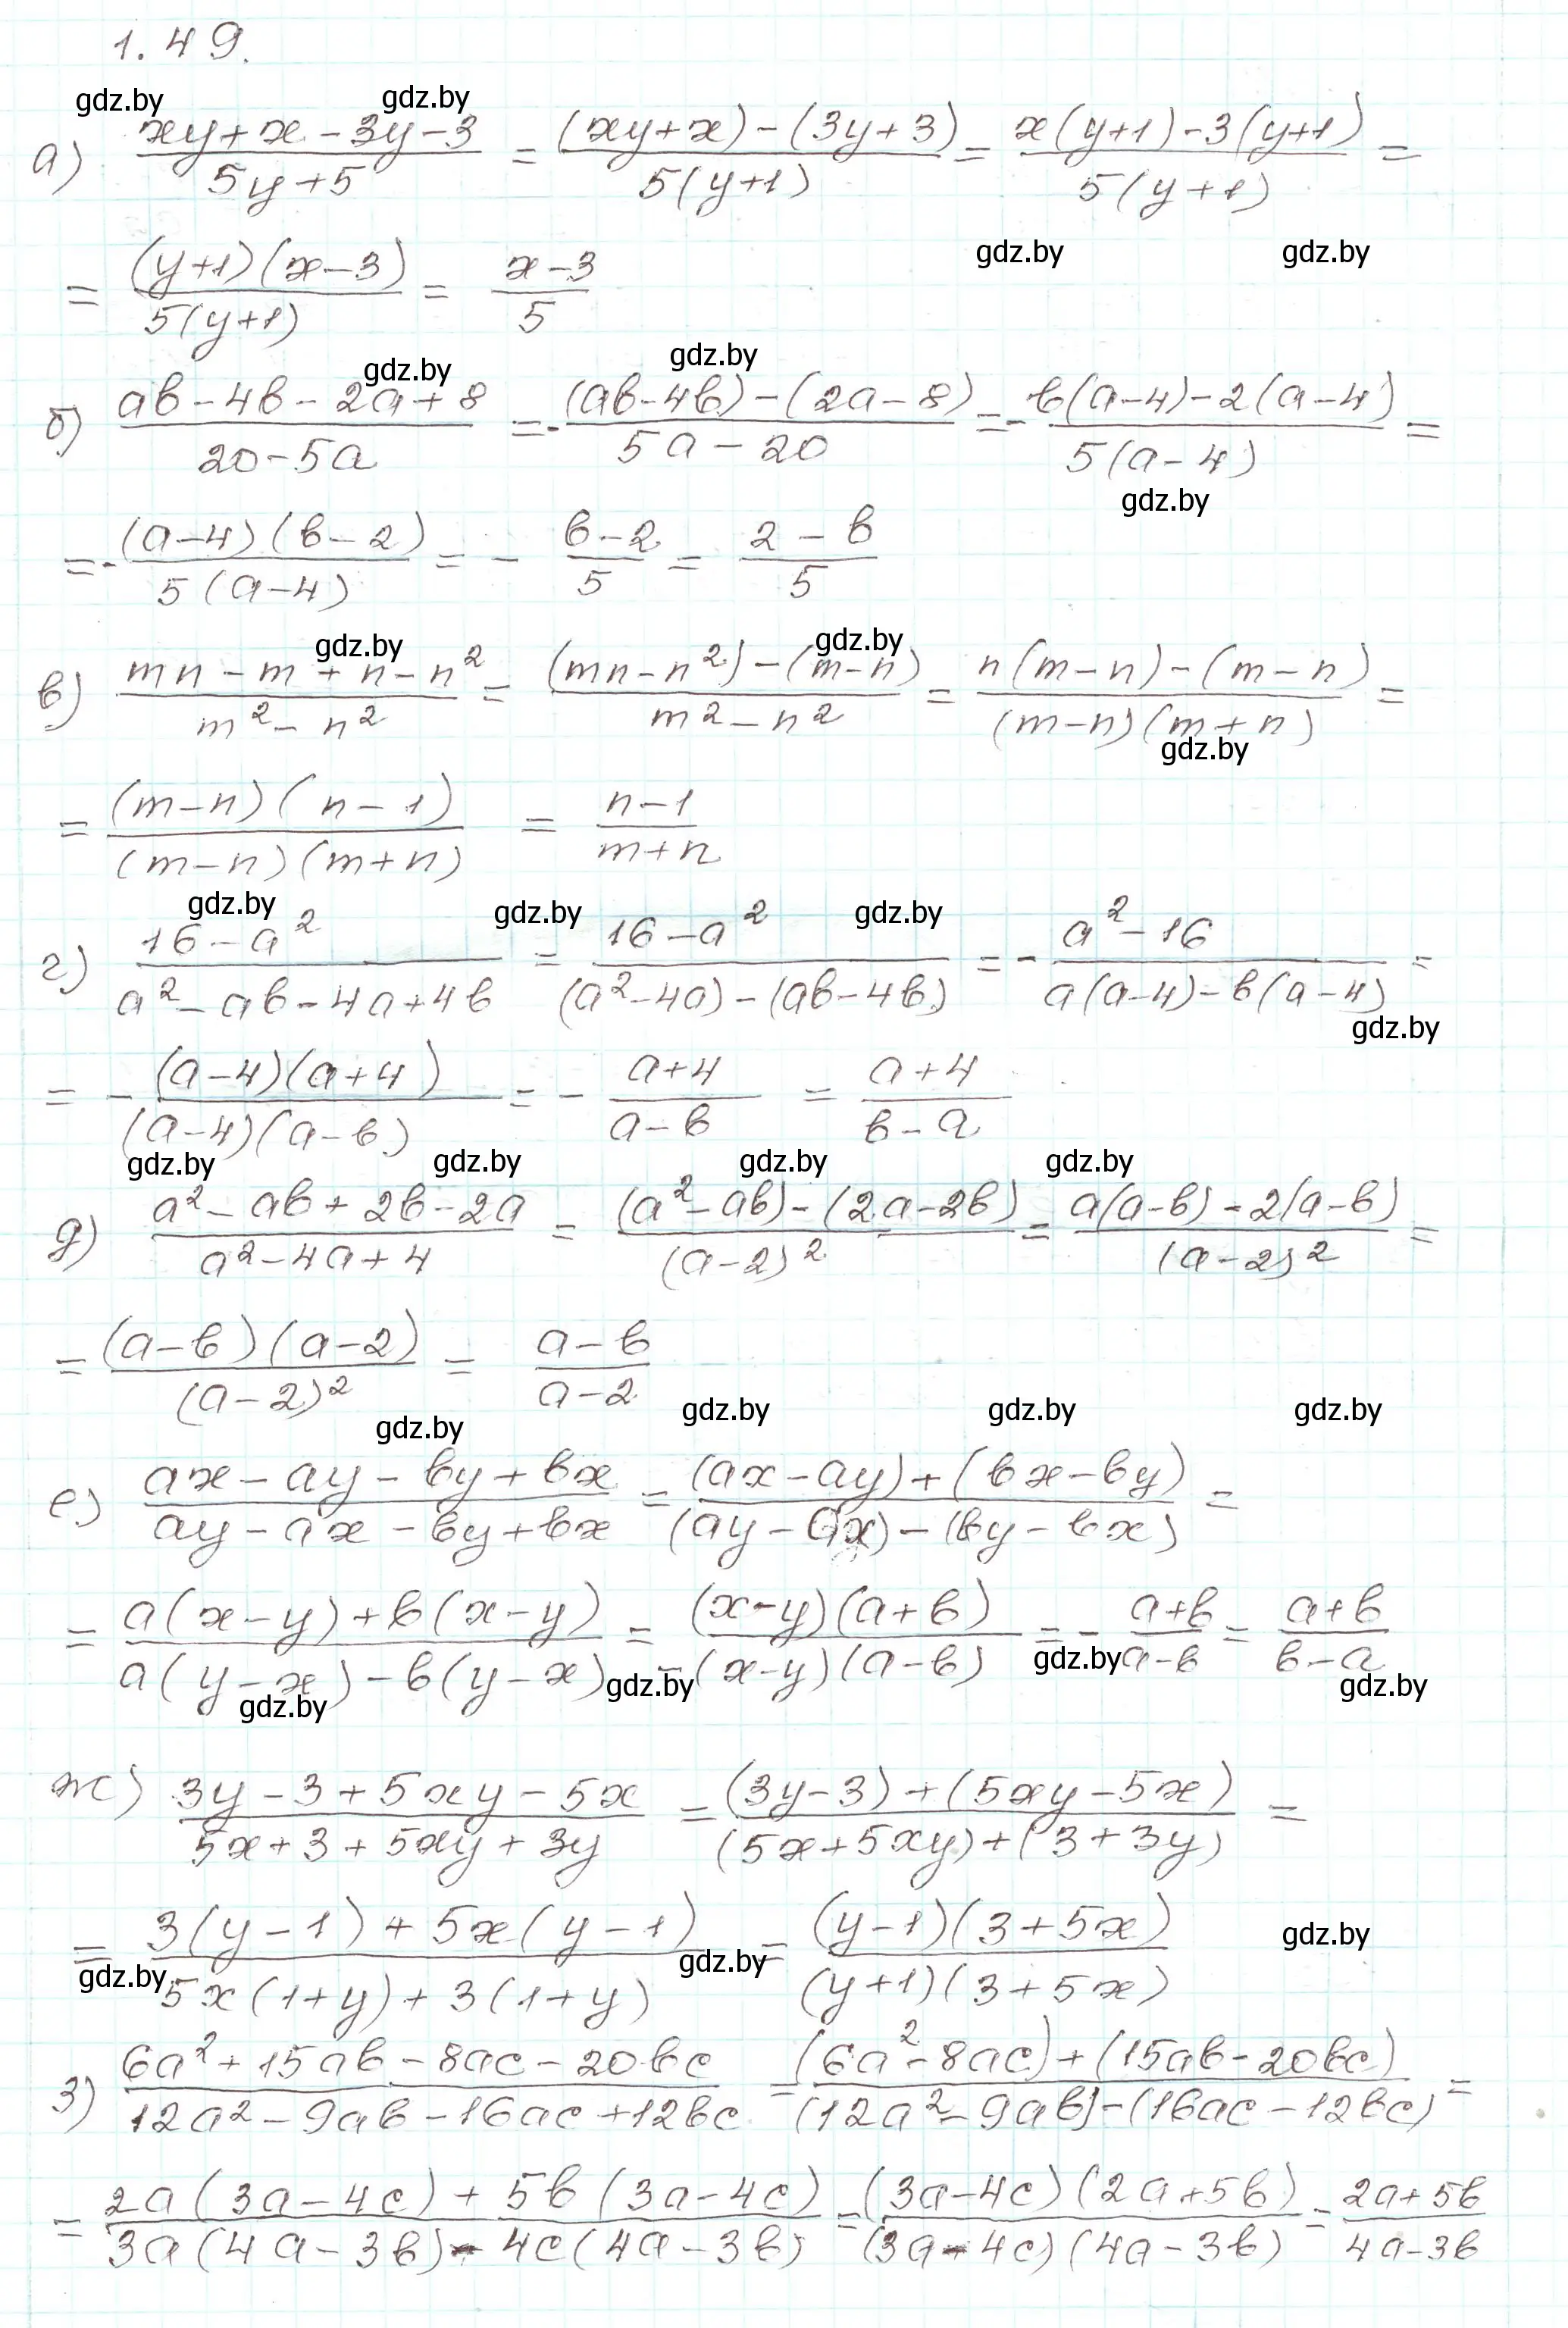 1.49.
gdz.by gdz.by
а) (xy+x-3y-3)/(5y+5) = ((xy+x)-(3y+3))/(5(y+1)) = (x(y+1)-3(y+1))/(5(y+1)) =
gdz.by gdz.by
= ((y+1)(x-3))/(5(y+1)) = (x-3)/5
gdz.by gdz.by
б) (ab-4b-2a+8)/(20-5a) = -((ab-4b)-(2a-8))/(5a-20) = -(b(a-4)-2(a-4))/(5(a-4)) =
gdz.by
= -((a-4)(b-2))/(5(a-4)) = - (b-2)/5 = (2-b)/5
gdz.by gdz.by
в) (mn-m+n-n²)/(m²-n²) = ((mn-n²)-(m-n))/(m²-n²) = (n(m-n)-(m-n))/((m-n)(m+n)) =
gdz.by
= ((m-n)(n-1))/((m-n)(m+n)) = (n-1)/(m+n)
gdz.by gdz.by gdz.by
г) (16-a²)/(a²-ab-4a+4b) = (16-a²)/((a²-4a)-(ab-4b)) = -(a²-16)/(a(a-4)-b(a-4)) =
gdz.by
= -((a-4)(a+4))/((a-4)(a-b)) = - (a+4)/(a-b) = (a+4)/(b-a)
gdz.by gdz.by gdz.by gdz.by
д) (a²-ab+2b-2a)/(a²-4a+4) = ((a²-ab)-(2a-2b))/((a-2)²) = (a(a-b)-2(a-b))/((a-2)²) =
= ((a-b)(a-2))/((a-2)²) = (a-b)/(a-2)
gdz.by gdz.by gdz.by gdz.by
е) (ax-ay-by+bx)/(ay-ax-by+bx) = ((ax-ay)+(bx-by))/((ay-ax)-(by-bx)) =
= (a(x-y)+b(x-y))/(a(y-x)-b(y-x)) = ((x-y)(a+b))/(-(x-y)(a-b)) = - (a+b)/(a-b) = (a+b)/(b-a)
gdz.by gdz.by gdz.by gdz.by
ж) (3y-3+5xy-5x)/(5x+3+5xy+3y) = ((3y-3)+(5xy-5x))/((5x+5xy)+(3+3y)) =
= (3(y-1)+5x(y-1))/(5x(1+y)+3(1+y)) = ((y-1)(3+5x))/((y+1)(3+5x))
gdz.by gdz.by gdz.by
з) (6a²+15ab-8ac-20bc)/(12a²-9ab-16ac+12bc) = ((6a²-8ac)+(15ab-20bc))/((12a²-9ab)-(16ac-12bc)) =
= (2a(3a-4c)+5b(3a-4c))/(3a(4a-3b)-4c(4a-3b)) = ((3a-4c)(2a+5b))/((3a-4c)(4a-3b)) = (2a+5b)/(4a-3b)